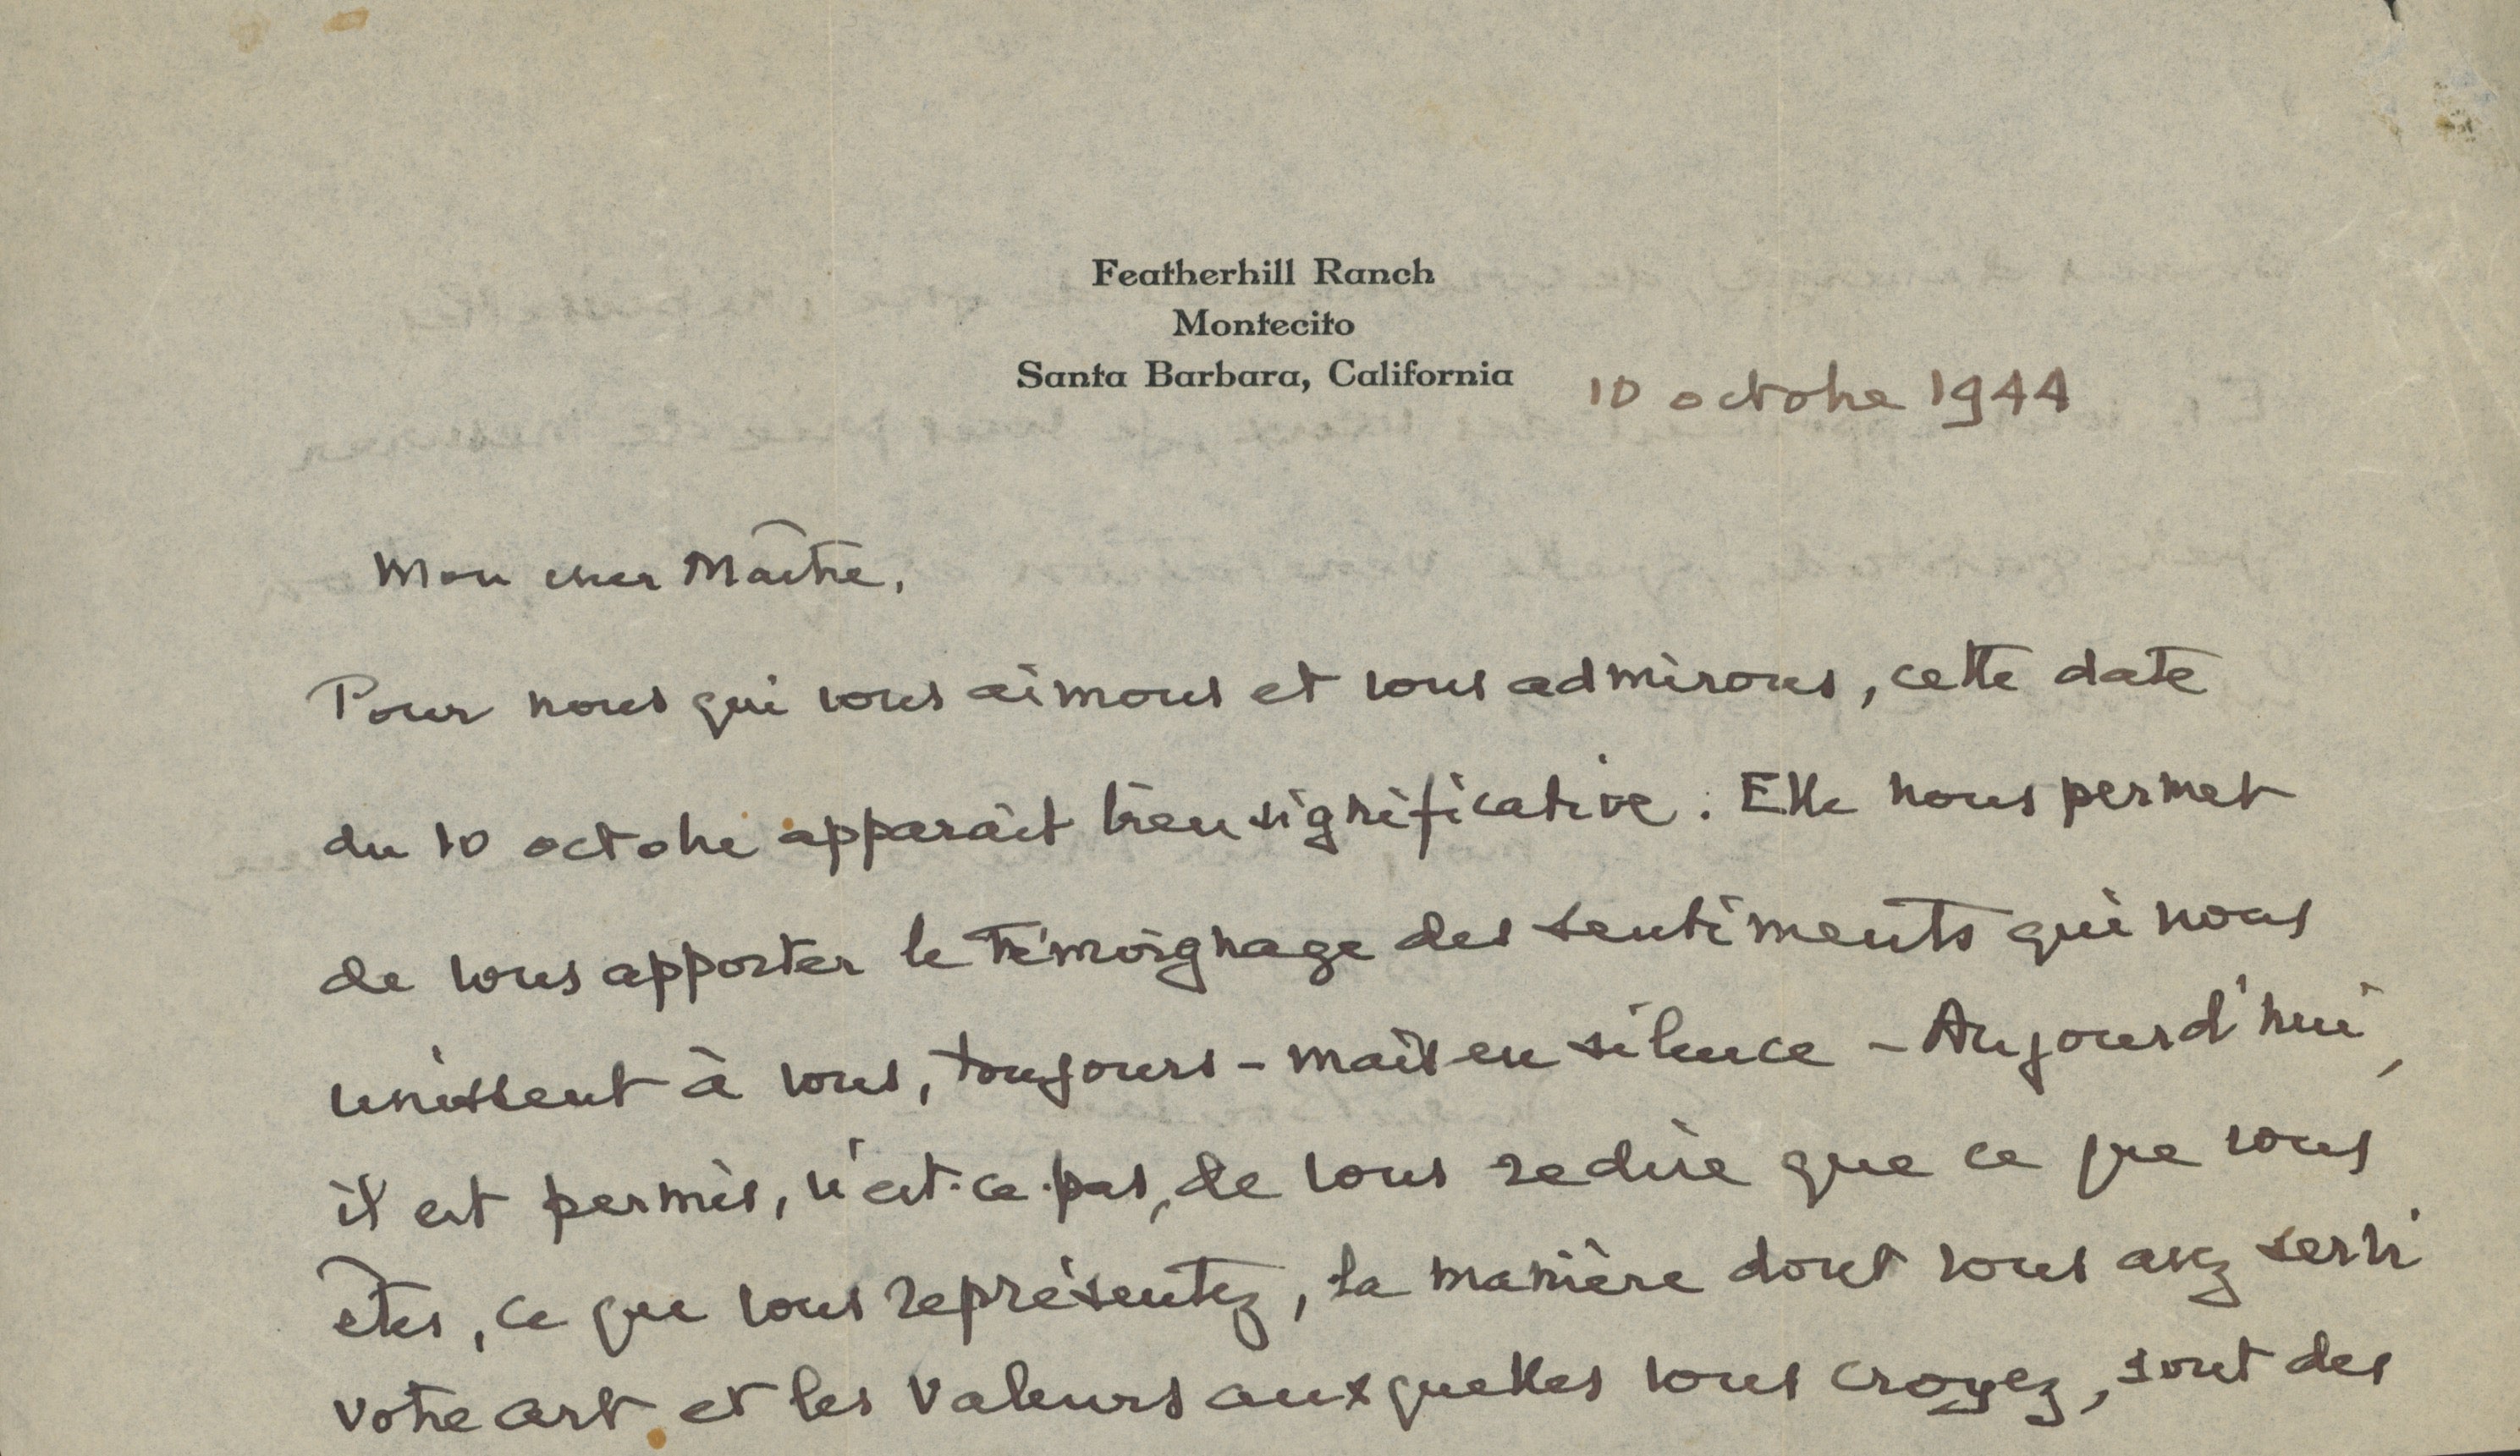 Featherhill Ranch
Montecito
Santa Barbara, California
10 octobre 1944
Mon cher Maître,
Pour nous qui vous aimons et vous admirons, cette date
du 10 octobre apparaît bien significative. Elle nous permet
de vous apporter le témoignage des sentiments qui nous
unissent à vous, toujours - mais en silence - Aujourd'hui,
il est permis, n'est-ce-pas, de vous redire que ce que vous
êtes, ce que vous représentez, la manière dont vous avez servi
votre art et les valeurs auxquelles vous croyez, sont des